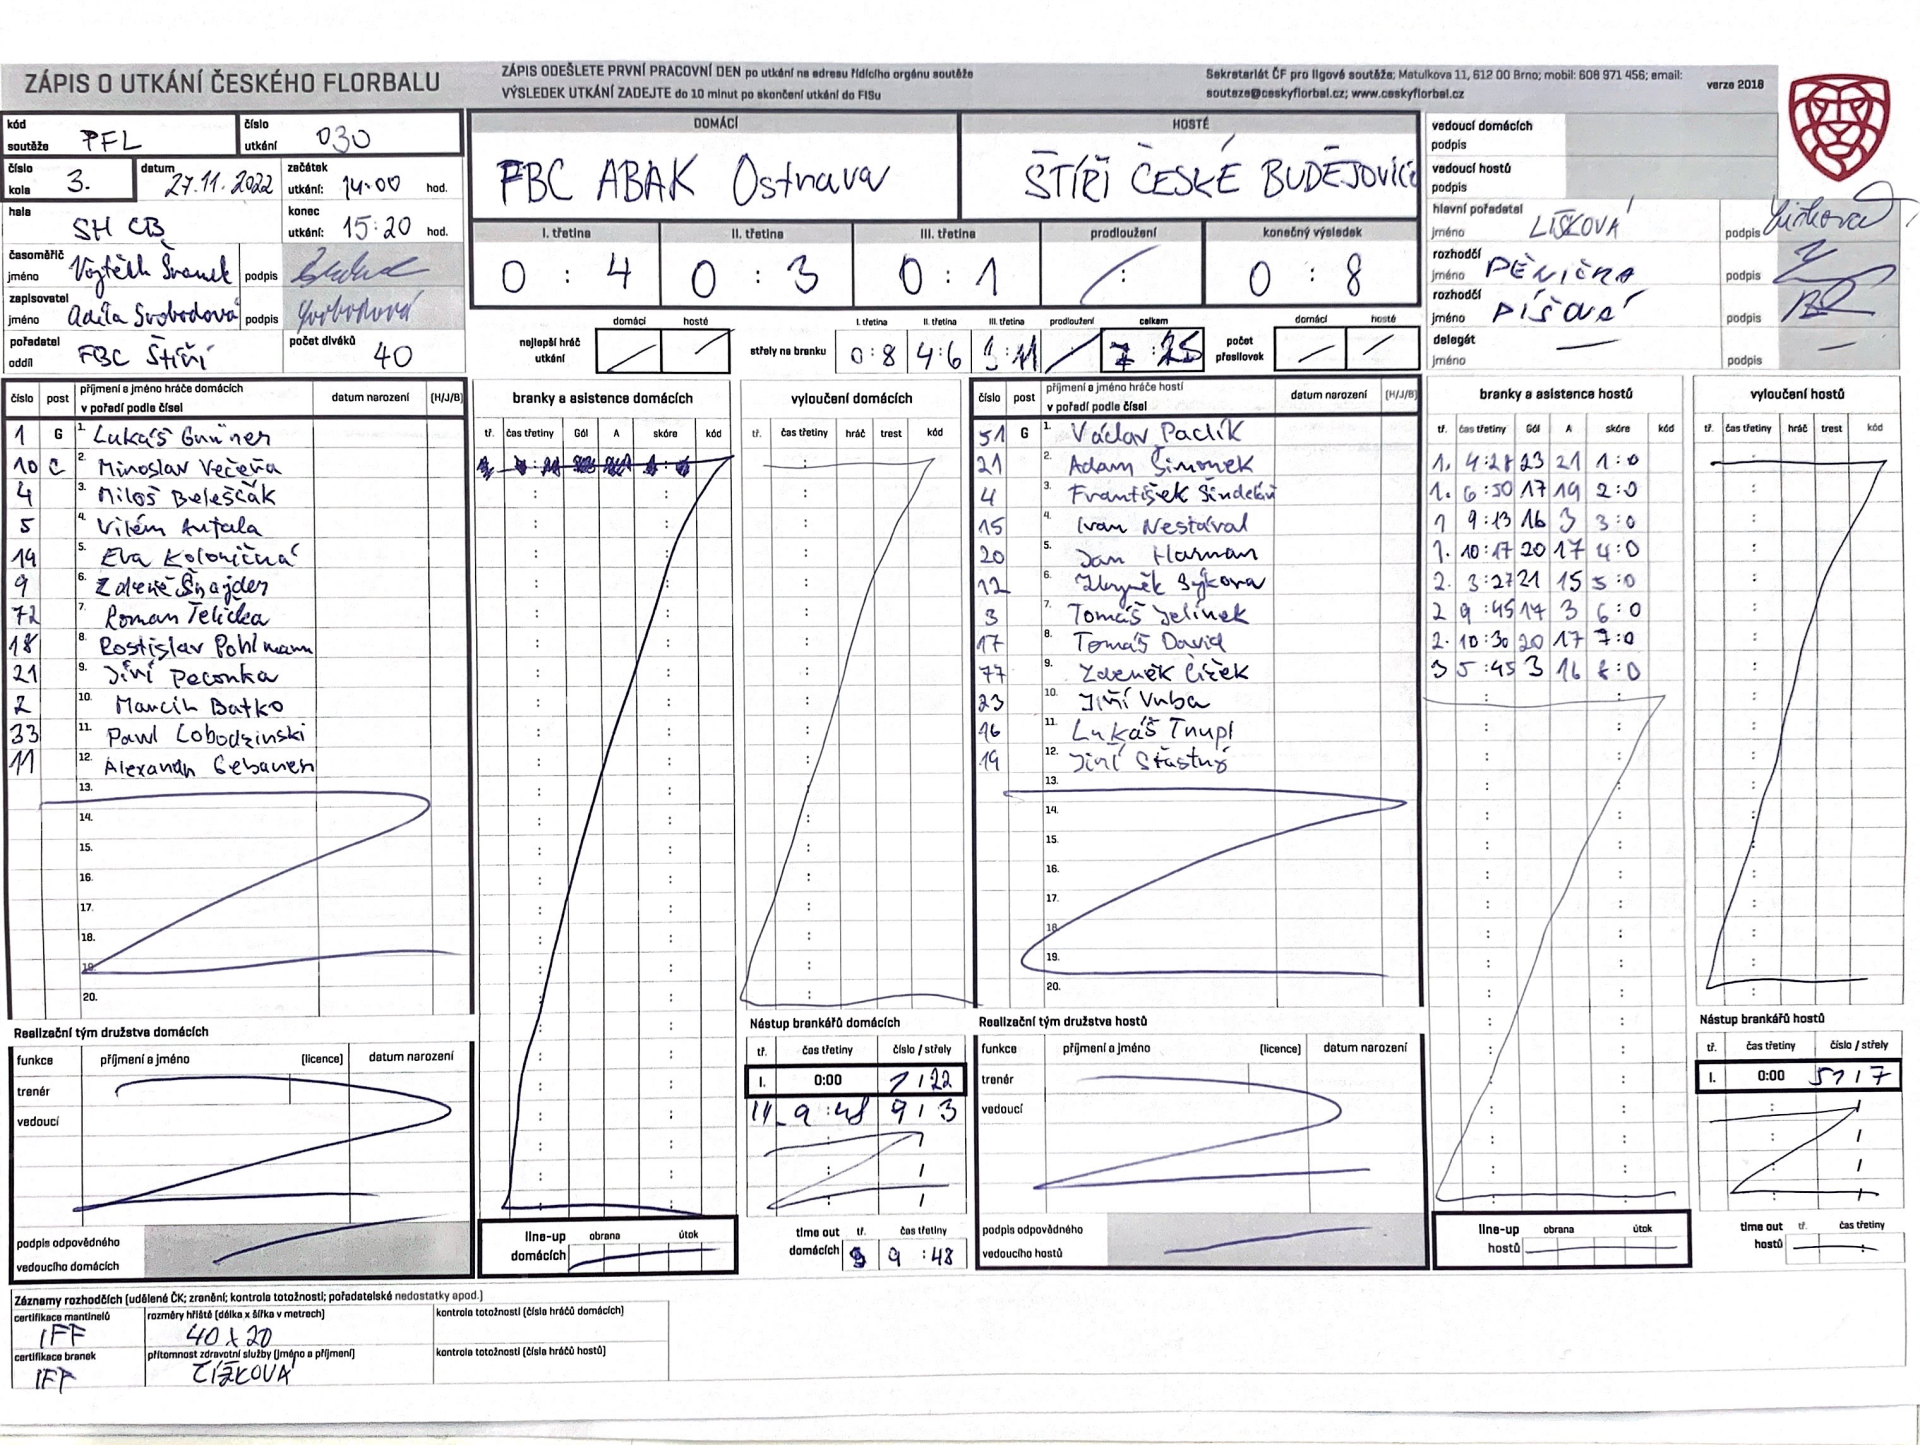 ZÁPIS O UTKÁNÍ ČESKÉHO FLORBALU
ZÁPIS ODEŠLETE PRVNÍ PRACOVNÍ DEN po utkání na adresu řídícího orgánu soutěže
VÝSLEDEK UTKÁNÍ ZADEJTE do 10 minut po skončení utkání do FISu
Sekretariát ČF pro ligové soutěže; Matulkova 11, 612 00 Brno; mobil: 608 971 456; email:
souteze@ceskyflorbal.cz; www.ceskyflorbal.cz
verze 2018
kód soutěže PFL
číslo utkání 030
číslo kola 3.
datum 27.11.2022
začátek utkání: 14:00 hod.
hala SH CB
konec utkání: 15:20 hod.
časoměřič jméno Vojtěch podpis
zapisovatel jméno Adéla Svobodová podpis Svobodová
pořadatel oddíl FBC Štíři
počet diváků 40
DOMÁCÍ
FBC ABAK Ostrava
HOSTÉ
ŠTÍŘI ČESKÉ BUDĚJOVICE
I. třetina II. třetina III. třetina prodloužení konečný výsledek
0 : 4 0 : 3 0 : 1 / : 0 : 8
nejlepší hráč utkání domácí hosté
střely na branku
I. třetina II. třetina III. třetina prodloužení celkem
0:8 4:6 3:11 / 7:25
počet přesilovek domácí hosté
vedoucí domácích podpis
vedoucí hostů podpis
hlavní pořadatel jméno LÍŠKOVÁ podpis
rozhodčí jméno PĚNIČKA podpis
rozhodčí jméno podpis
delegát jméno — podpis —
číslo post příjmení a jméno hráče domácích v pořadí podle čísel datum narození (H/J/B)
1 G 1. Lukáš
10 C 2. Miroslav Večeřa
4 3. Miloš Beleščák
5 4. Vilém Antala
19 5. Eva Koloničná
9 6. Zdeně Šnajder
72 7. Roman Telička
18 8. Rostislav Pohlmann
21 9. Jiří Peconka
2 10. Marcin Batko
33 11. Pawl Lobodzinski
11 12. Alexandr Gebauer
13.
14.
15.
16.
17.
18.
19.
20.
branky a asistence domácích
tř. čas třetiny Gól A skóre kód
vyloučení domácích
tř. čas třetiny hráč trest kód
číslo post příjmení a jméno hráče hostí v pořadí podle čísel datum narození (H/J/B)
51 G 1. Václav Paclík
21 2. Adam Šimonek
4 3. František Šindelář
15 4. Ivan Nestával
20 5. Jan Harman
12 6. Zbyněk Sýkora
3 7. Tomáš Jelínek
17 8. Tomáš David
77 9. Zdeněk Čížek
23 10. Jiří Vrba
16 11. Lukáš Trupl
19 12. Jiří Šťastný
13.
14.
15.
16.
17.
18.
19.
20.
branky a asistence hostů
tř. čas třetiny Gól A skóre kód
1. 4:28 23 21 1:0
1. 6:50 17 19 2:0
1 9:13 16 3 3:0
1. 10:17 20 17 4:0
2. 3:27 21 15 5:0
2 9:45 17 3 6:0
2. 10:30 20 17 7:0
3 5:45 3 16 8:0
vyloučení hostů
tř. čas třetiny hráč trest kód
Realizační tým družstva domácích
funkce příjmení a jméno (licence) datum narození
trenér
vedoucí
podpis odpovědného
vedoucího domácích
line-up domácích obrana útok
Nástup brankářů domácích
tř. čas třetiny číslo / střely
I. 0:00 1 / 22
III. 9:48 9 / 3
time out domácích tř. čas třetiny
3 9:48
Realizační tým družstva hostů
funkce příjmení a jméno (licence) datum narození
trenér
vedoucí
podpis odpovědného
vedoucího hostů
line-up hostů obrana útok
Nástup brankářů hostů
tř. čas třetiny číslo / střely
I. 0:00 51 / 7
time out hostů tř. čas třetiny
Záznamy rozhodčích (udělené ČK; zranění; kontrola totožnosti; pořadatelské nedostatky apod.)
certifikace mantinelů IFF
rozměry hřiště (délka x šířka v metrech) 40 x 20
kontrola totožnosti (čísla hráčů domácích)
certifikace branek IFF
přítomnost zdravotní služby (jméno a příjmení) ČÍŽKOVÁ
kontrola totožnosti (čísla hráčů hostů)